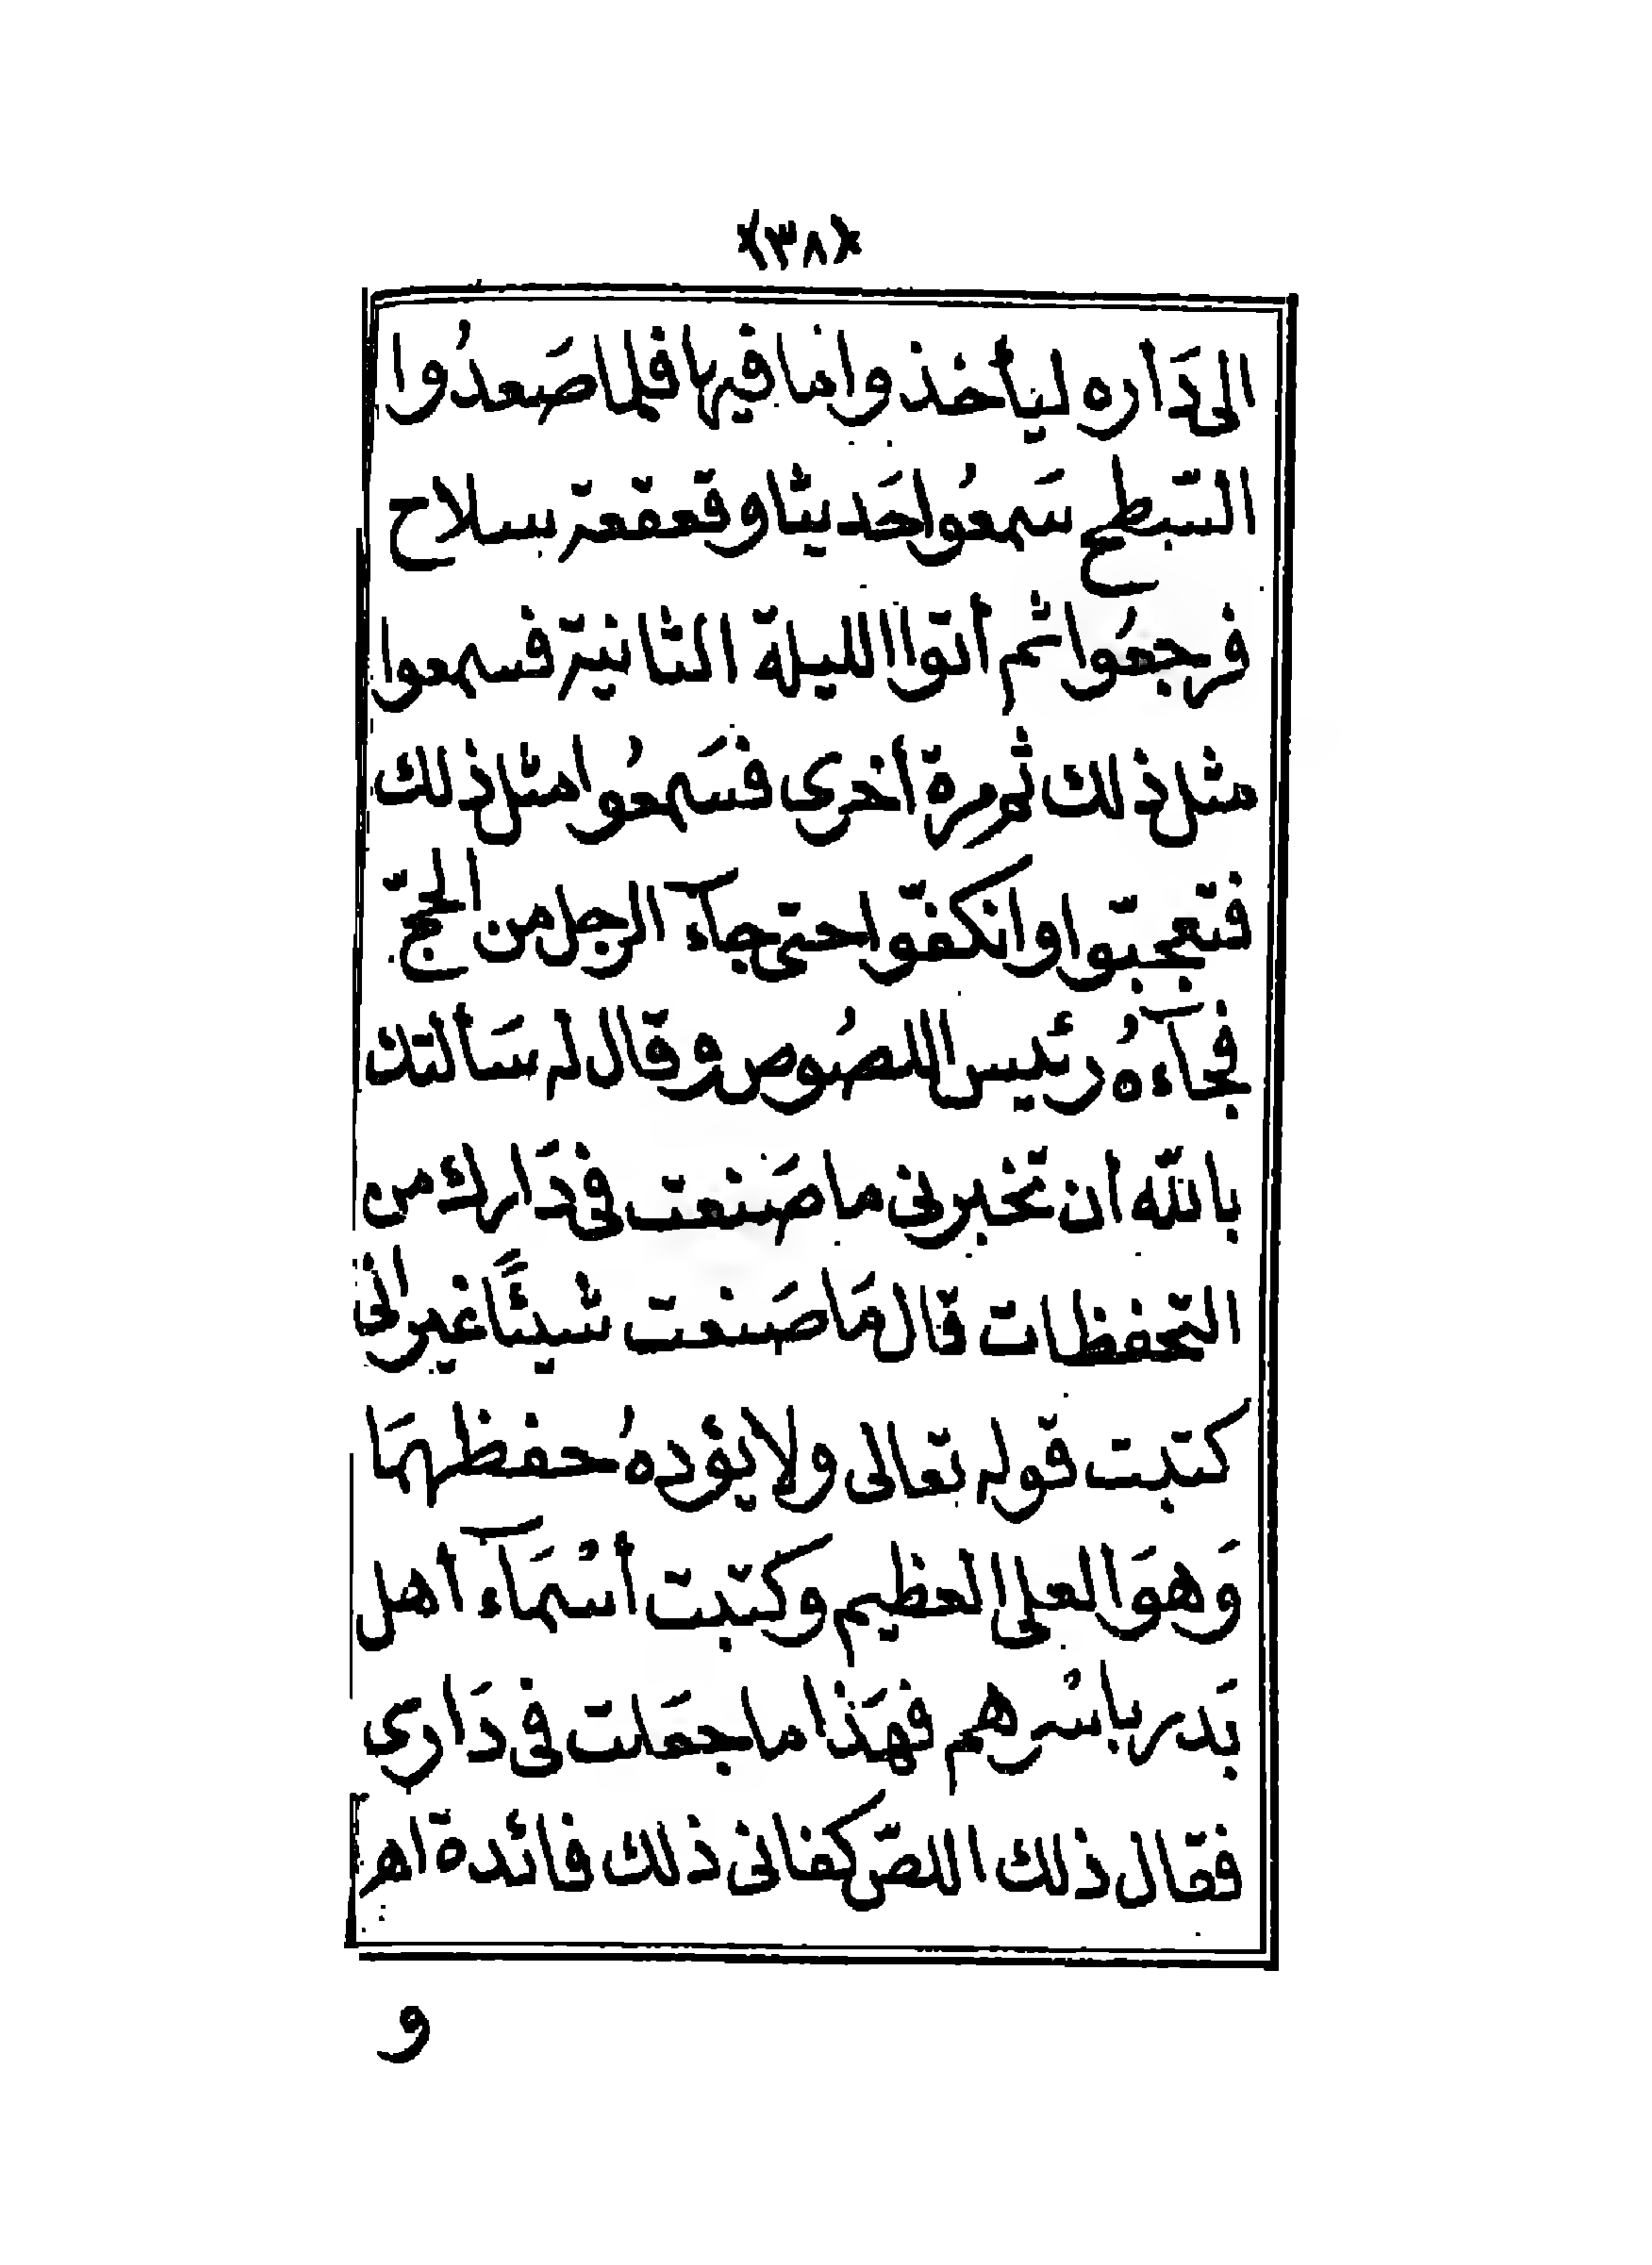 ﴿٣٨﴾
الى دَاره ليأخذوا ما فيها فلما صَعدُوا
السّطح سَمعُوا حَديثا وقعقعة سلاح
فرجعُوا ثم أتوا الليلة الثانية فسمعوا
مثل ذلك ثم مرة أخرى فسَمعُوا مثل ذلك
فتعجبّوا وانكفّوا حتى جآء الرجل من الحجّ
فجآءهُ رئيس اللصُوص وقال له سَألتك
بالله ان تخبرنى ما صَنعت فى دَارك من
التحفظات قال مَا صَنعت شيئًا غير انى
كتبت قوله تعالى ولا يؤدهُ حفظهمَا
وَهوَ العلى العظيم وكتبت أسْمَآء أهل
بَدر باسْرهم فهَذا ما جعَلت فى دَارى
فقال ذلك اللصّ كفانى ذلك فائدة اهـ
و